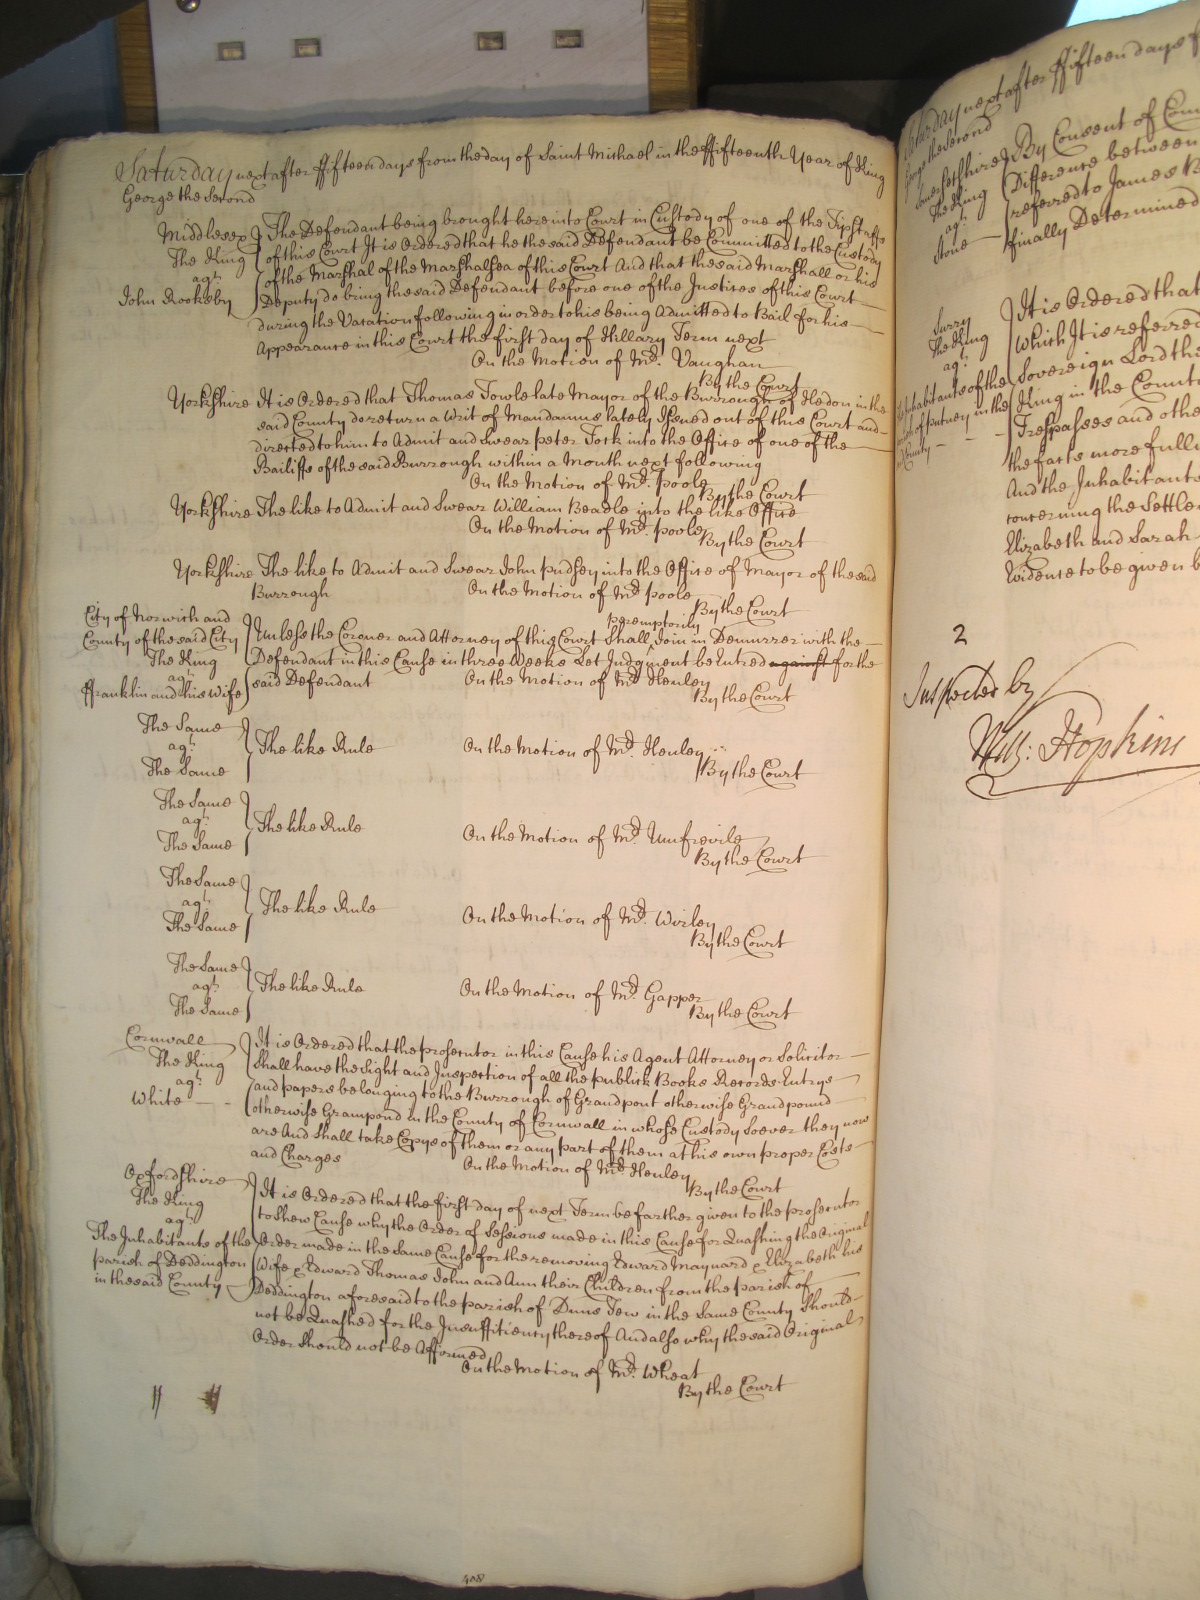 Saturday next after ffifteen days from the day of Saint Michael in the ffifteenth Year of King
George the Second
Middlesex
The King
agt.
John Rookeby
The Defendant being brought here into Court in Custody of one of the Tipstaffs
of this Court It is Ordered that he the said Defendant be Committed to the Custody
of the Marshal of the Marshalsea of this Court And that the said Marshall or his
Deputy do bring the said Defendant before one of the Justices of this Court
during the Vacation following in order to his being Admitted to Bail for his
Appearance in this Court the first day of Hillary Term next
On the Motion of Mr. Vaughan
By the Court
Yorkshire It is Ordered that Thomas Towle late Mayor of the Burrough of Hedon in the
said County do return a Writ of Mandamus lately Issued out of this Court and
directed to him to Admit and Swear peter Fork into the Office of one of the
Bailiffs of the said Burrough within a Month next following
On the Motion of Mr. poole
By the Court
Yorkshire The like to Admit and Swear William Beadle into the like Office
On the Motion of Mr. poole
By the Court
Yorkshire The like to Admit and Swear John pudsey into the Office of Mayor of the said
Burrough On the Motion of Mr. poole
By the Court
City of Norwich and
County of the said City
The King
agt.
ffranklin and his Wife
peremptorily
Unless the Coroner and Attorney of this Court Shall Join in Demurrer with the
Defendant in this Cause in three Weeks Let Judgment be Entred against for the
said Defendant On the Motion of Mr. Henley
By the Court
The Same
agt.
The Same
The like Rule On the Motion of Mr. Henley
By the Court
The Same
agt.
The Same
The like Rule On the Motion of Mr. Umfrevile
By the Court
The Same
agt.
The Same
The like Rule On the Motion of Mr. Wirley
By the Court
The Same
agt.
The Same
The like Rule On the Motion of Mr. Gapper
By the Court
Cornwall
The King
agt.
White
It is Ordered that the prosecutor in this Cause his Agent Attorney or Solicitor
Shall have the Sight and Inspection of all the publick Books Records Entrys
and papers belonging to the Burrough of Grandpont otherwise Grandpound
otherwise Grampond in the County of Cornwall in whose Custody soever they now
are And Shall take Copys of them or any part of them at his own proper Costs
and Charges On the Motion of Mr. Henley
By the Court
Oxfordshire
The King
agt.
The Inhabitants of the
parish of Deddington
in the said County
It is Ordered that the first day of next Term be farther given to the prosecutor
to Shew Cause why the Order of Sessions made in this Cause for Quashing the Original
Order made in the same Cause for the removing Edward Maynard & Elizabeth his
Wife & Edward Thomas John and Ann their Children from the parish of
Deddington aforesaid to the parish of Duns Tew in the Same County Should
not be Quashed for the Insufficiency thereof And also why the said Original
Order should not be Affirmed
On the Motion of Mr. Wheat
By the Court
408
Saturday next after ffifteen days
George the Second
Somersetshire
The King
agt.
Stone
By Consent of
Difference between
referred to James
finally Determined
Surry
The King
agt.
Inhabitants of the
parish of putney in the
County
It is Ordered that
Which It is referred
Sovereign Lord the
King in the
Trespasses and
the facts more
And the Inhabitants
concerning the
Elizabeth and Sarah
Evidence to be given
2
Inspected by
Will: Hopkins